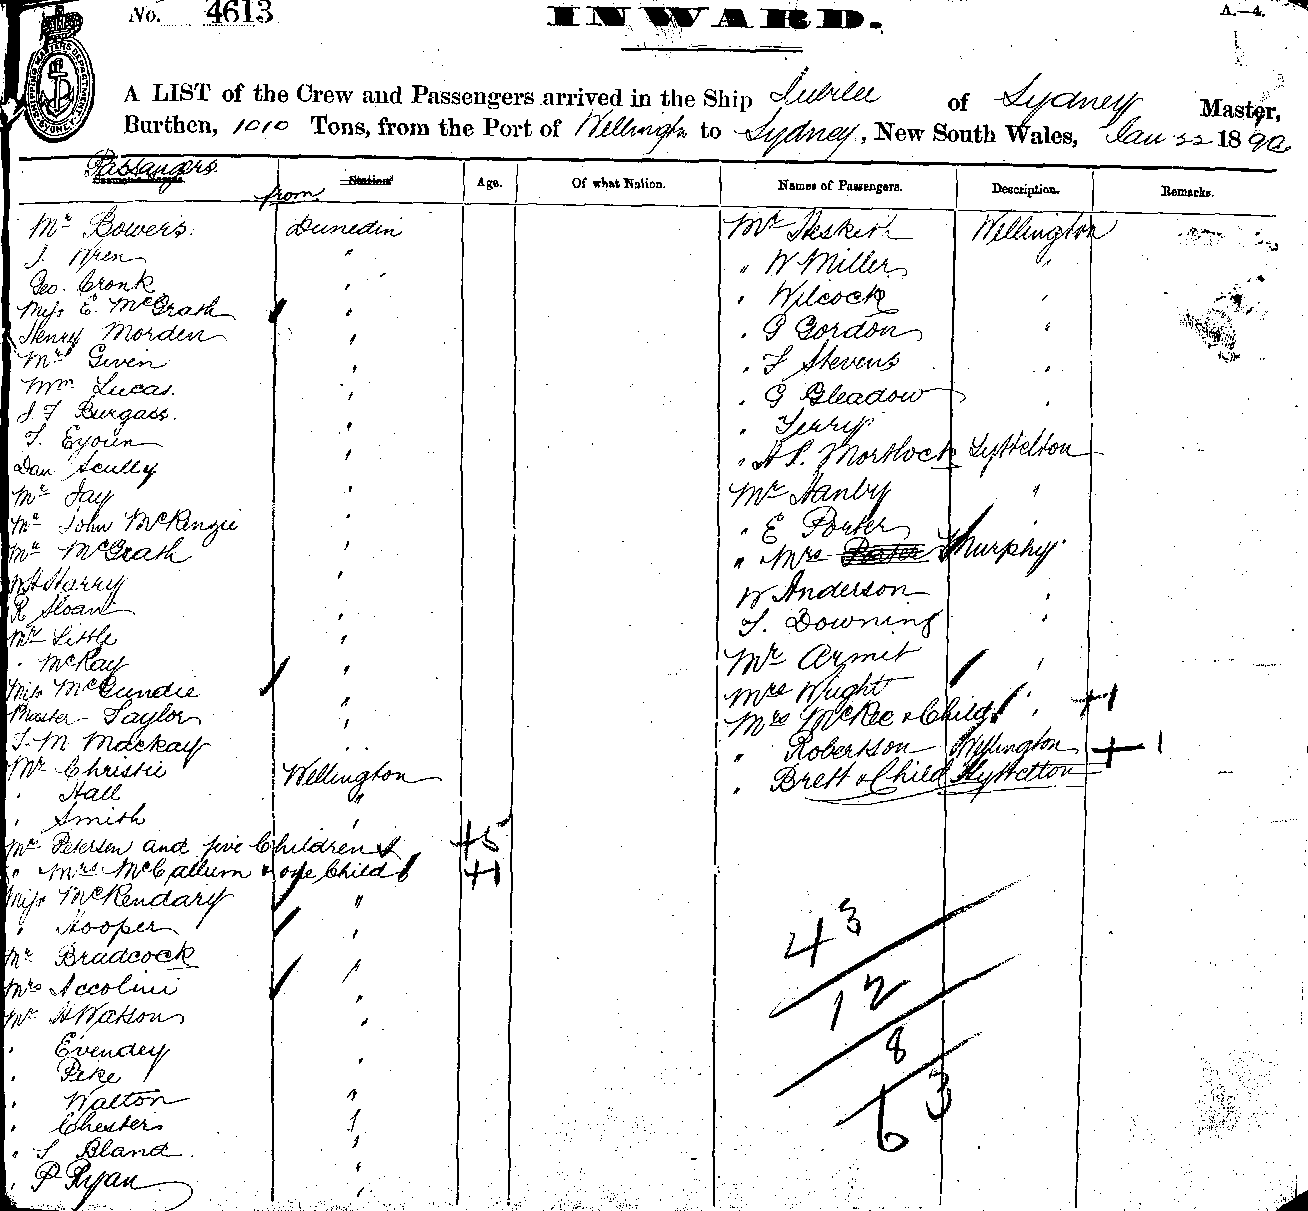 No. 4613
INWARD.
A.—4.
A LIST of the Crew and Passengers arrived in the Ship Jubilee of Sydney Master,
Burthen, 1010 Tons, from the Port of Wellington to Sydney, New South Wales, Jan 22 1890
Passengers from Station Age. Of what Nation. Names of Passengers. Description. Remarks.
Mr Bowers. Dunedin
J. Wren "
Geo. Cronk "
Miss E. McGrath "
Henry Morden "
Mr Given "
Wm Lucas. "
J. F Burgass. "
T. Eyoun "
Dan Scully "
Mr Jay "
Mr John McKenzie "
Mr McGrath "
W H Harry "
R Sloan "
Mr Little "
" McKay "
Miss McGundie "
Master Taylor "
T. M Mackay "
Mr Christie Wellington
" Hall "
" Smith "
Mr Petersen and five Children +5
" Mrs McCallum & one Child +1
Miss McKendary "
" Hooper "
Mr Bradcock "
Mrs Accolini "
Mr H Watson "
" Evendey "
" Peke
" Walton "
" Chesters "
" S Bland "
" P Ryan "
Mr Hesketh Wellington
" W Miller "
" Wilcock "
" G Gordon "
" F Stevens "
" G Gleadow "
" Terry
" A P. Mortlock Lyttelton
Mr Hanby "
" E Porter "
" Mrs Porter Murphy
W Anderson "
T. Downing "
Mr Armit "
Mrs Wright
Mrs McKee & Child " +1
" Robertson Wellington + 1
" Brett & Child Lyttelton
43
12
8
63